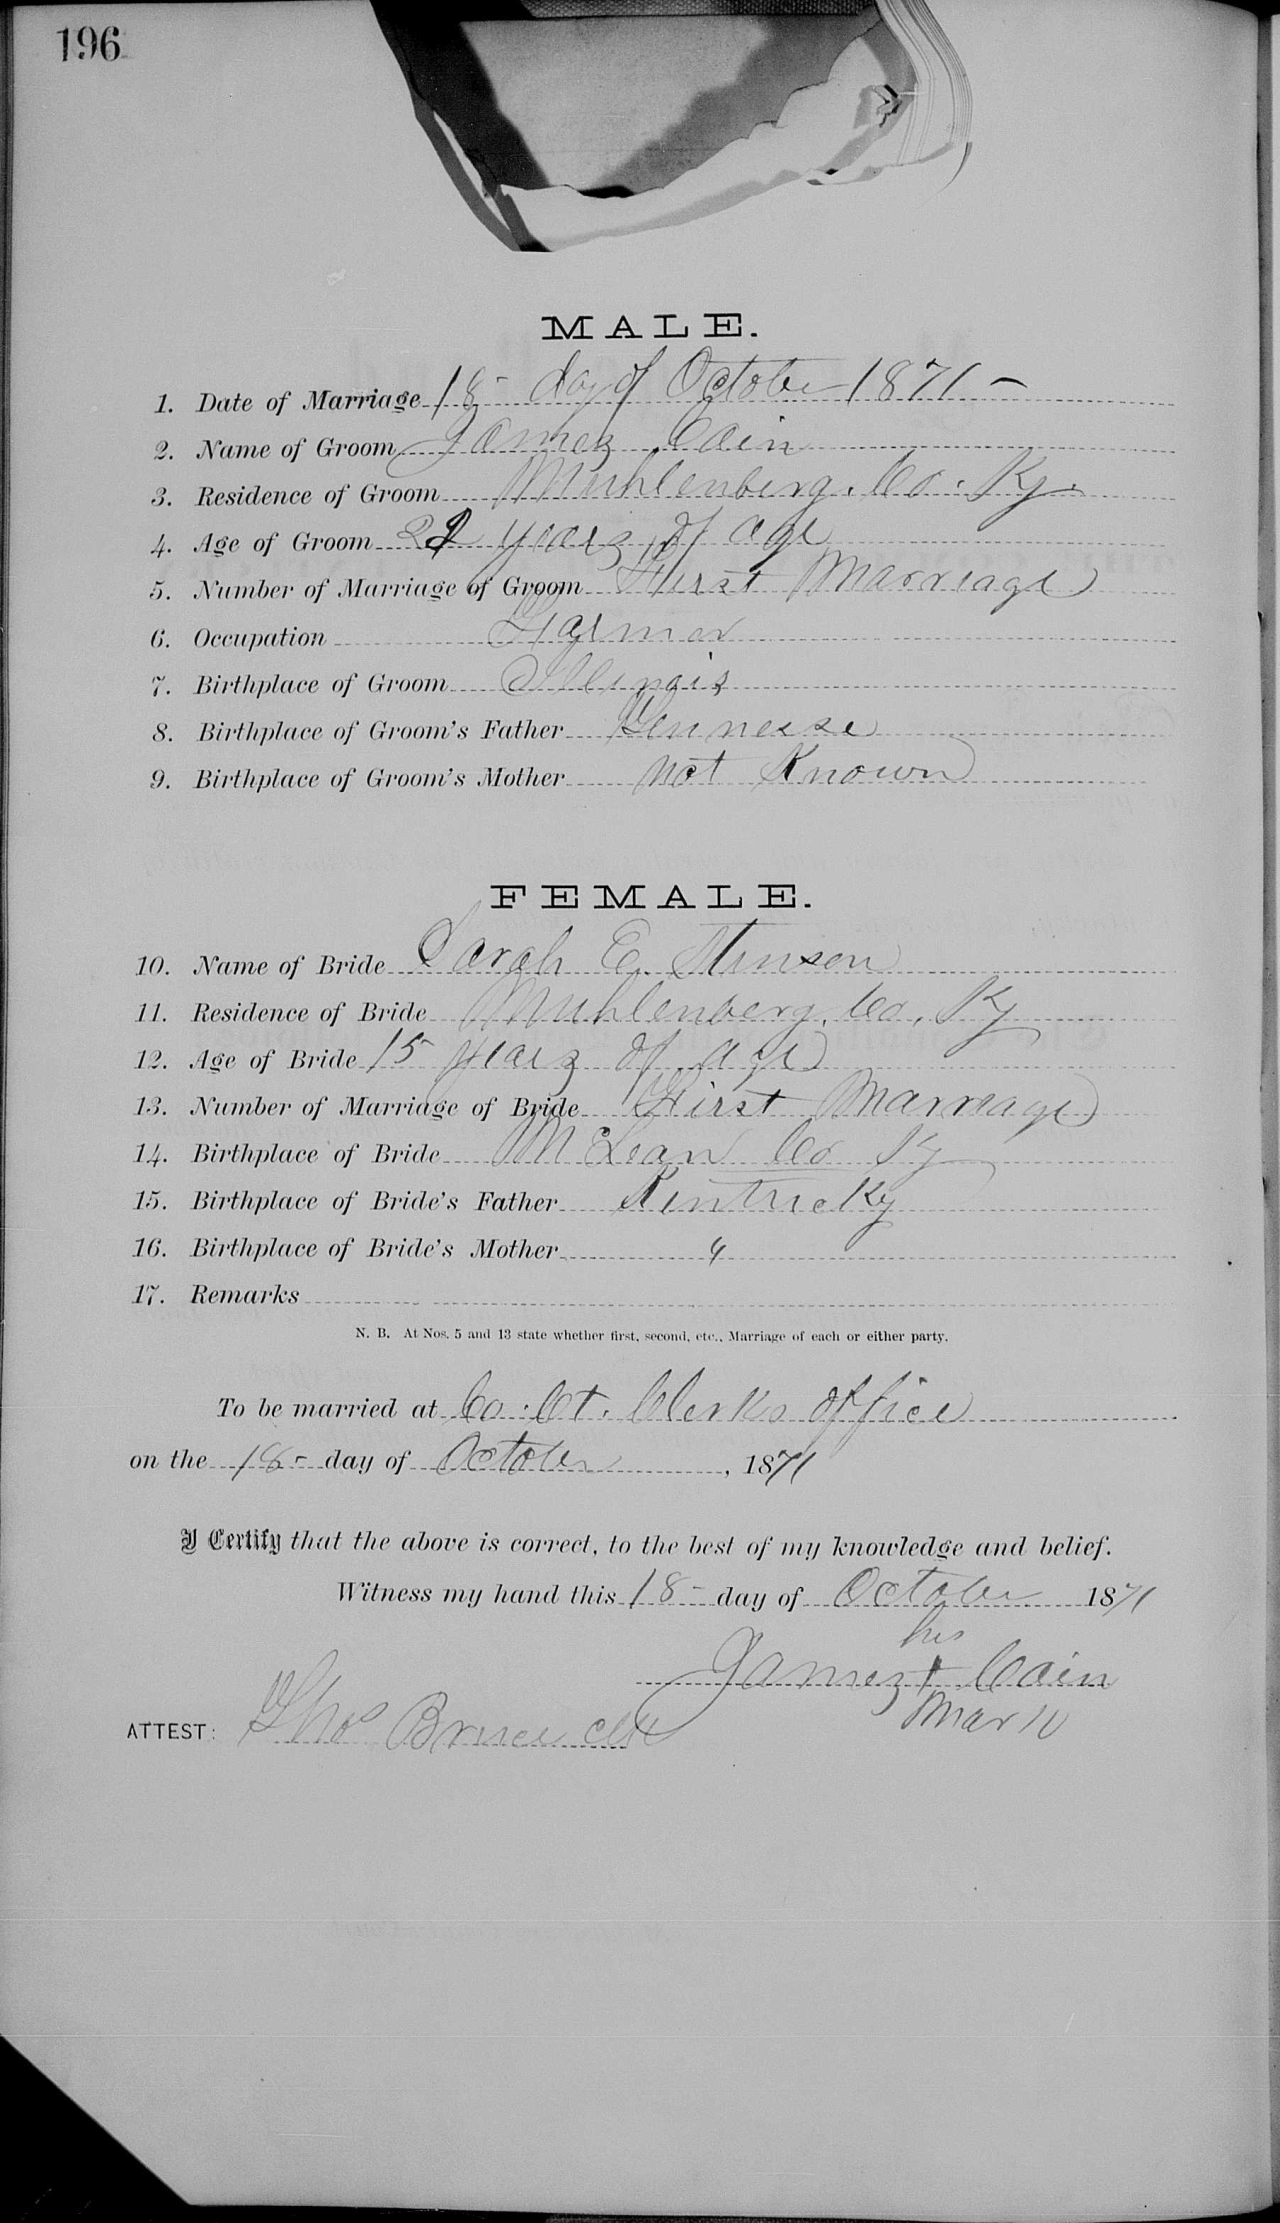 196
MALE.
1. Date of Marriage 18- day of October 1871 -
2. Name of Groom James Cain
3. Residence of Groom Muhlenberg. Co. Ky.
4. Age of Groom years of age
5. Number of Marriage of Groom First Marriage
6. Occupation Farmer
7. Birthplace of Groom Illinois
8. Birthplace of Groom's Father Tennessee
9. Birthplace of Groom's Mother not Known
FEMALE.
10. Name of Bride Sarah E. Stinson
11. Residence of Bride Muhlenberg. Co. Ky
12. Age of Bride 15 years of age
13. Number of Marriage of Bride First Marriage
14. Birthplace of Bride McLean Co Ky
15. Birthplace of Bride's Father Kentucky
16. Birthplace of Bride's Mother "
17. Remarks
N. B. At Nos. 5 and 13 state whether first, second, etc., Marriage of each or either party.
To be married at Co. Ct. Clerks office
on the 18- day of October, 1871
I Certify that the above is correct, to the best of my knowledge and belief.
Witness my hand this 18- day of October 1871
his
James + Cain
mark
ATTEST: Thos Bruce clk